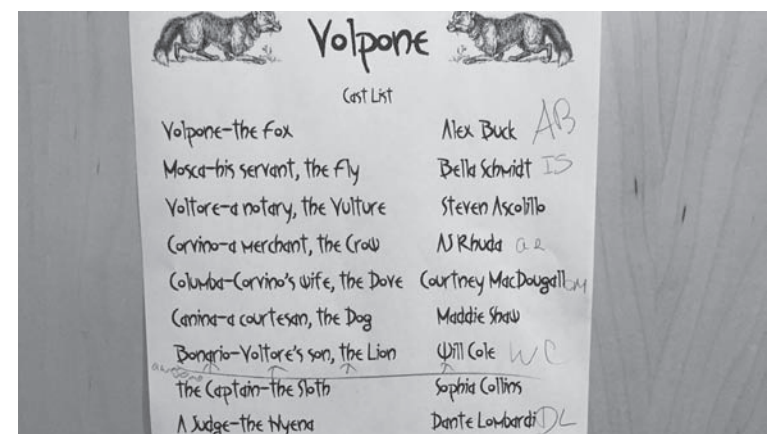 Volpone
Cast List
Volpone-the Fox Alex Buck AB
Mosca-his servant, the Fly Bella Schmidt IS
Voltore-a notary, the Vulture Steven Ascolillo
Corvino-a Merchant, the Crow AJ Rhuda a r
Columba-Corvino's wife, the Dove Courtney MacDougall CM
Canina-a courtesan, the Dog Maddie Shaw
Bonario-Voltore's son, the Lion Will Cole WC
awesome
the Captain-the Sloth Sophia Collins
A Judge-the Hyena Dante Lombardi DL